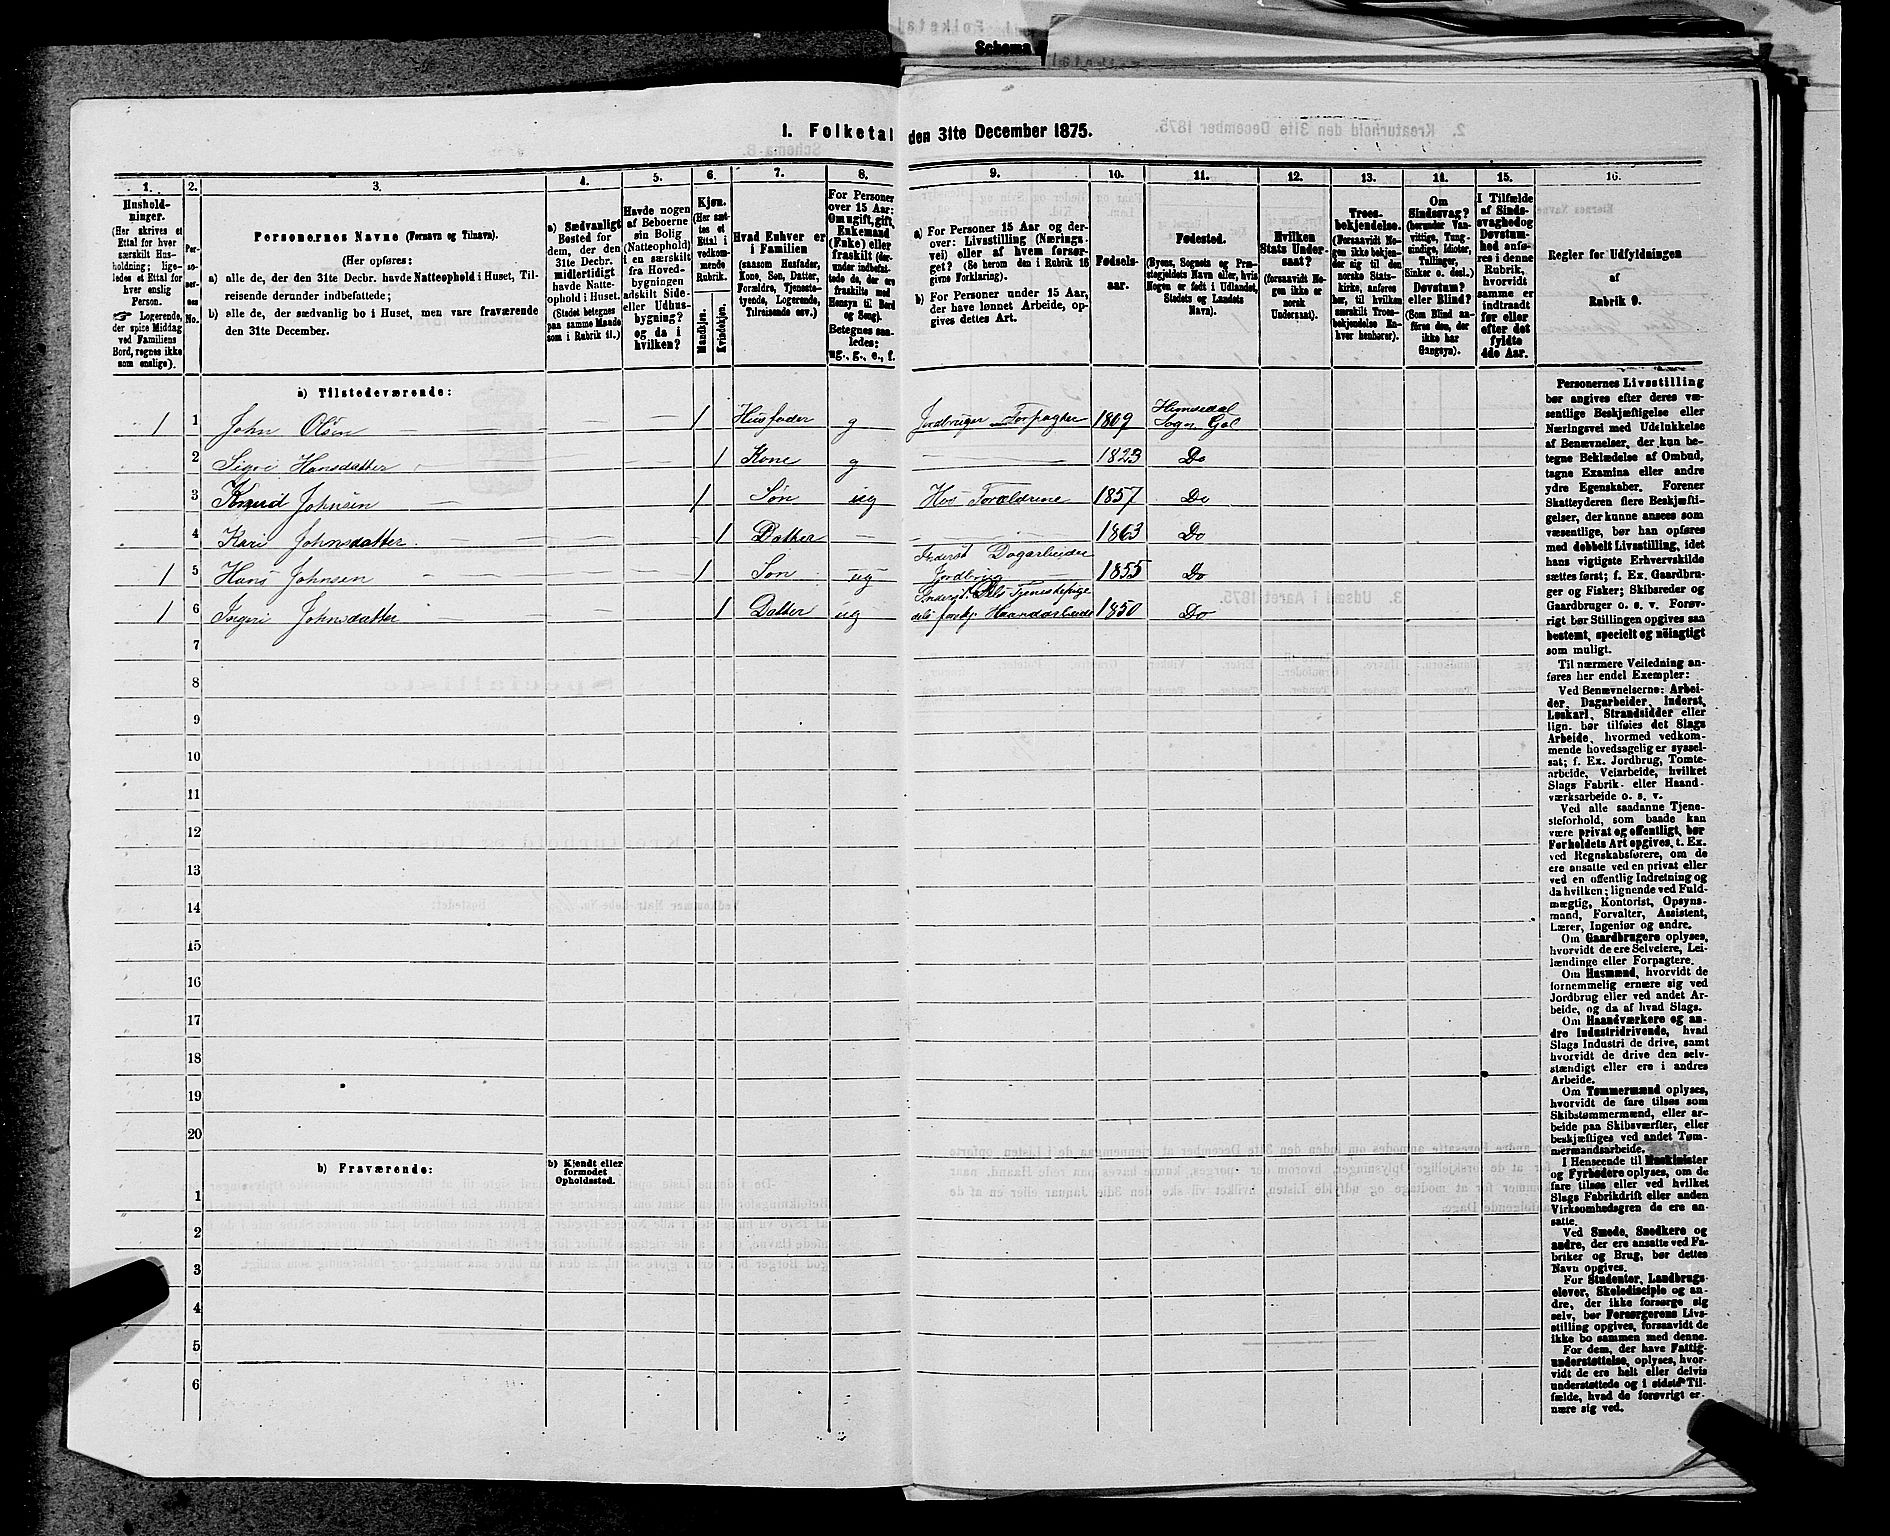 1. Folketal den 31te December 1875.
1. 2. 3. 4. 5. 6. 7. 8. 9. 10. 11. 12. 13. 14. 15. 16.
Hushold-
ninger.
(Her skrives et
Ettal for hver
særskilt Hus-
holdning; lige-
ledes et Ettal for
hver enslig
Person.
Logerende,
der spise Middag
ved Familiens
Bord, regnes ikke
som enslige).
Per-
so-
ner-
nes
No.
Personernes Navne (Fornavn og Tilnavn).
(Her opføres:
a) alle de, der den 31te Decbr. havde Natteophold i Huset, Til-
reisende derunder indbefattede;
b) alle de, der sædvanlig bo i Huset, men vare fraværende
den 31te December.
a) Sædvanligt
Bosted for
dem, der den
31te Decbr.
midlertidigt
havde Natte-
ophold i Huset.
(Stedet betegnes
paa samme Maade
som i Rubrik 11.)
Havde nogen
af Beboerne
sin Bolig
(Natteophold)
i en særskilt
fra Hoved-
bygningen
adskilt Side-
eller Udhus-
bygning?
og da i
hvilken?
Kjøn.
(Her sæt-
tes et
Ettal i
vedkom-
mende
Rubrik.
Mandkjøn.
Kvindekjøn.
Hvad Enhver er
i Familien
(saasom Husfader,
Kone, Søn, Datter,
Forældre, Tjeneste-
tyende, Logerende,
Tilreisende osv.)
For Personer
over 15 Aar:
Om ugift, gift
Enkemand
(Enke) eller
fraskilt (der-
under indbefat-
tede de, der ere
fraskilte med
Hensyn til Bord
og Seng).
Betegnes saa-
ledes:
ug., g., e., f.
a) For Personer 15 Aar og der-
over: Livsstilling (Nærings-
vei) eller af hvem forsør-
get? (Se herom den i Rubrik 16
givne Forklaring).
b) For Personer under 15 Aar,
der have lønnet Arbeide, op-
gives dettes Art.
Fødsels-
aar.
Fødested.
(Byens, Sognets og Præ-
stegjeldets Navn eller, hvis
Nogen er født i Udlandet,
Stedets og Landets
Navn).
Hvilken
Stats Under-
saat?
(forsaavidt No-
gen ikke er
norsk
Undersaat).
Troes-
bekjendelse.
(Forsaavidt No-
gen ikke bekjen-
der sig til den
norske Stats-
kirke, anføres
her, til hvilken
særskilt Troes-
bekjendelse En-
hver henhører).
Om
Sindssvag?
(herunder Van-
vittige, Tung-
sindige, Idioter,
Tullinger,
Sinker o. desl.)
Døvstum?
eller Blind?
(Som Blind an-
føres den, der
ikke har
Gangsyn).
I Tilfælde
af Sinds-
svaghed og
Døvstum-
hed anfø-
res i denne
Rubrik,
hvorvidt
samme er
indtraadt
før eller
efter det
fyldte
4de Aar.
Regler for Udfyldningen
af
Rubrik 9.
a) Tilstedeværende:
1 1 John Olsen — — 1 Husfader g Jordbruger Forpagter 1809 Hemsedal Sogn Gol
2 Sigri Hansdatter 1 Kone g — 1823 Do
3 Knud Johnsen 1 Søn ug Hos Forældrene 1857 Do
4 Kari Johnsdatter 1 Datter — — 1863 Do
1 5 Hans Johnsen 1 Søn ug Inderst Dagarbeider Jordbrug 1855 Do
1 6 Ingri Johnsdatter 1 Datter ug Inderst. Dels Tjenestepige dels Haandarbeide 1850 Do
7
8
9
10
11
12
13
14
15
16
17
18
19
20
b) Fraværende:
b) Kjendt eller
formodet
Opholdssted.
1
2
3
4
5
6
Personernes Livsstilling
bør angives efter deres væ-
sentlige Beskjæftigelse eller
Næringsvei med Udelukkelse
af Benævnelser, der kun be-
tegne Beklædelse af Ombud,
tagne Examina eller andre
ydre Egenskaber. Forener
Skatteyderen flere Beskjæfti-
gelser, der kunne ansees som
væsentlige, bør han opføres
med dobbelt Livsstilling, idet
hans vigtigste Erhvervskilde
sættes først; f. Ex. Gaardbru-
ger og Fisker; Skibsreder og
Gaardbruger o. s. v. Forøv-
rigt bør Stillingen opgives saa
bestemt, specielt og nøiagtigt
som muligt.
Til nærmere Veiledning an-
føres her endel Exempler:
Ved Benævnelserne: Arbei-
der, Dagarbeider, Inderst,
Løskarl, Strandsidder eller
lign. bør tilføies det Slags
Arbeide, hvormed vedkom-
mende hovedsagelig er syssel-
sat; f. Ex. Jordbrug, Tomte-
arbeide, Veiarbeide, hvilket
Slags Fabrik- eller Haand-
værksarbeide o. s. v.
Ved alle saadanne Tjene-
steforhold, som baade kan
være privat og offentligt, bør
Forholdets Art opgives, t. Ex.
ved Regnskabsførere, om de
ere ansatte ved en privat eller
ved en offentlig Indretning og
da hvilken; lignende ved Fuld-
mægtig, Kontorist, Opsyns-
mand, Forvalter, Assistent,
Lærer, Ingeniør og andre.
Om Gaardbrugere oplyses,
hvorvidt de ere Selveiere, Lei-
lændinge eller Forpagtere.
Om Husmænd, hvorvidt de
fornemmelig ernære sig ved
Jordbrug eller ved andet Ar-
beide, og da af hvad Slags.
Om Haandværkere og an-
dre Industridrivende, hvad
Slags Industri de drive, samt
hvorvidt de drive den selv-
stændigt eller ere i andres
Arbeide.
Om Tømmermænd oplyses,
hvorvidt de fare tilsøs som
Skibstømmermænd, eller ar-
beide paa Skibsværfter, eller
beskjæftiges ved andet Tøm-
mermandsarbeide.
I Henseende til Maskinister
og Fyrbødere oplyses, om de
fare tilsøs eller ved hvilket
Slags Fabrikdrift eller anden
Virksomhedsgren de ere an-
satte.
Ved Smede, Snedkere og
andre, der ere ansatte ved Fa-
briker og Brug, bør dettes
Navn opgives.
For Studenter, Landbrugs-
elever, Skoledisciple og an-
dre, der ikke forsørge sig
selv, bør Forsørgerens Livs-
stilling opgives, forsaavidt de
ikke bo sammen med denne.
For dem, der have Fattig-
understøttelse, oplyses, hvor-
vidt de ere helt eller delvis
understøttede og i sidste Til-
fælde, hvad de forøvrigt er-
nære sig ved.